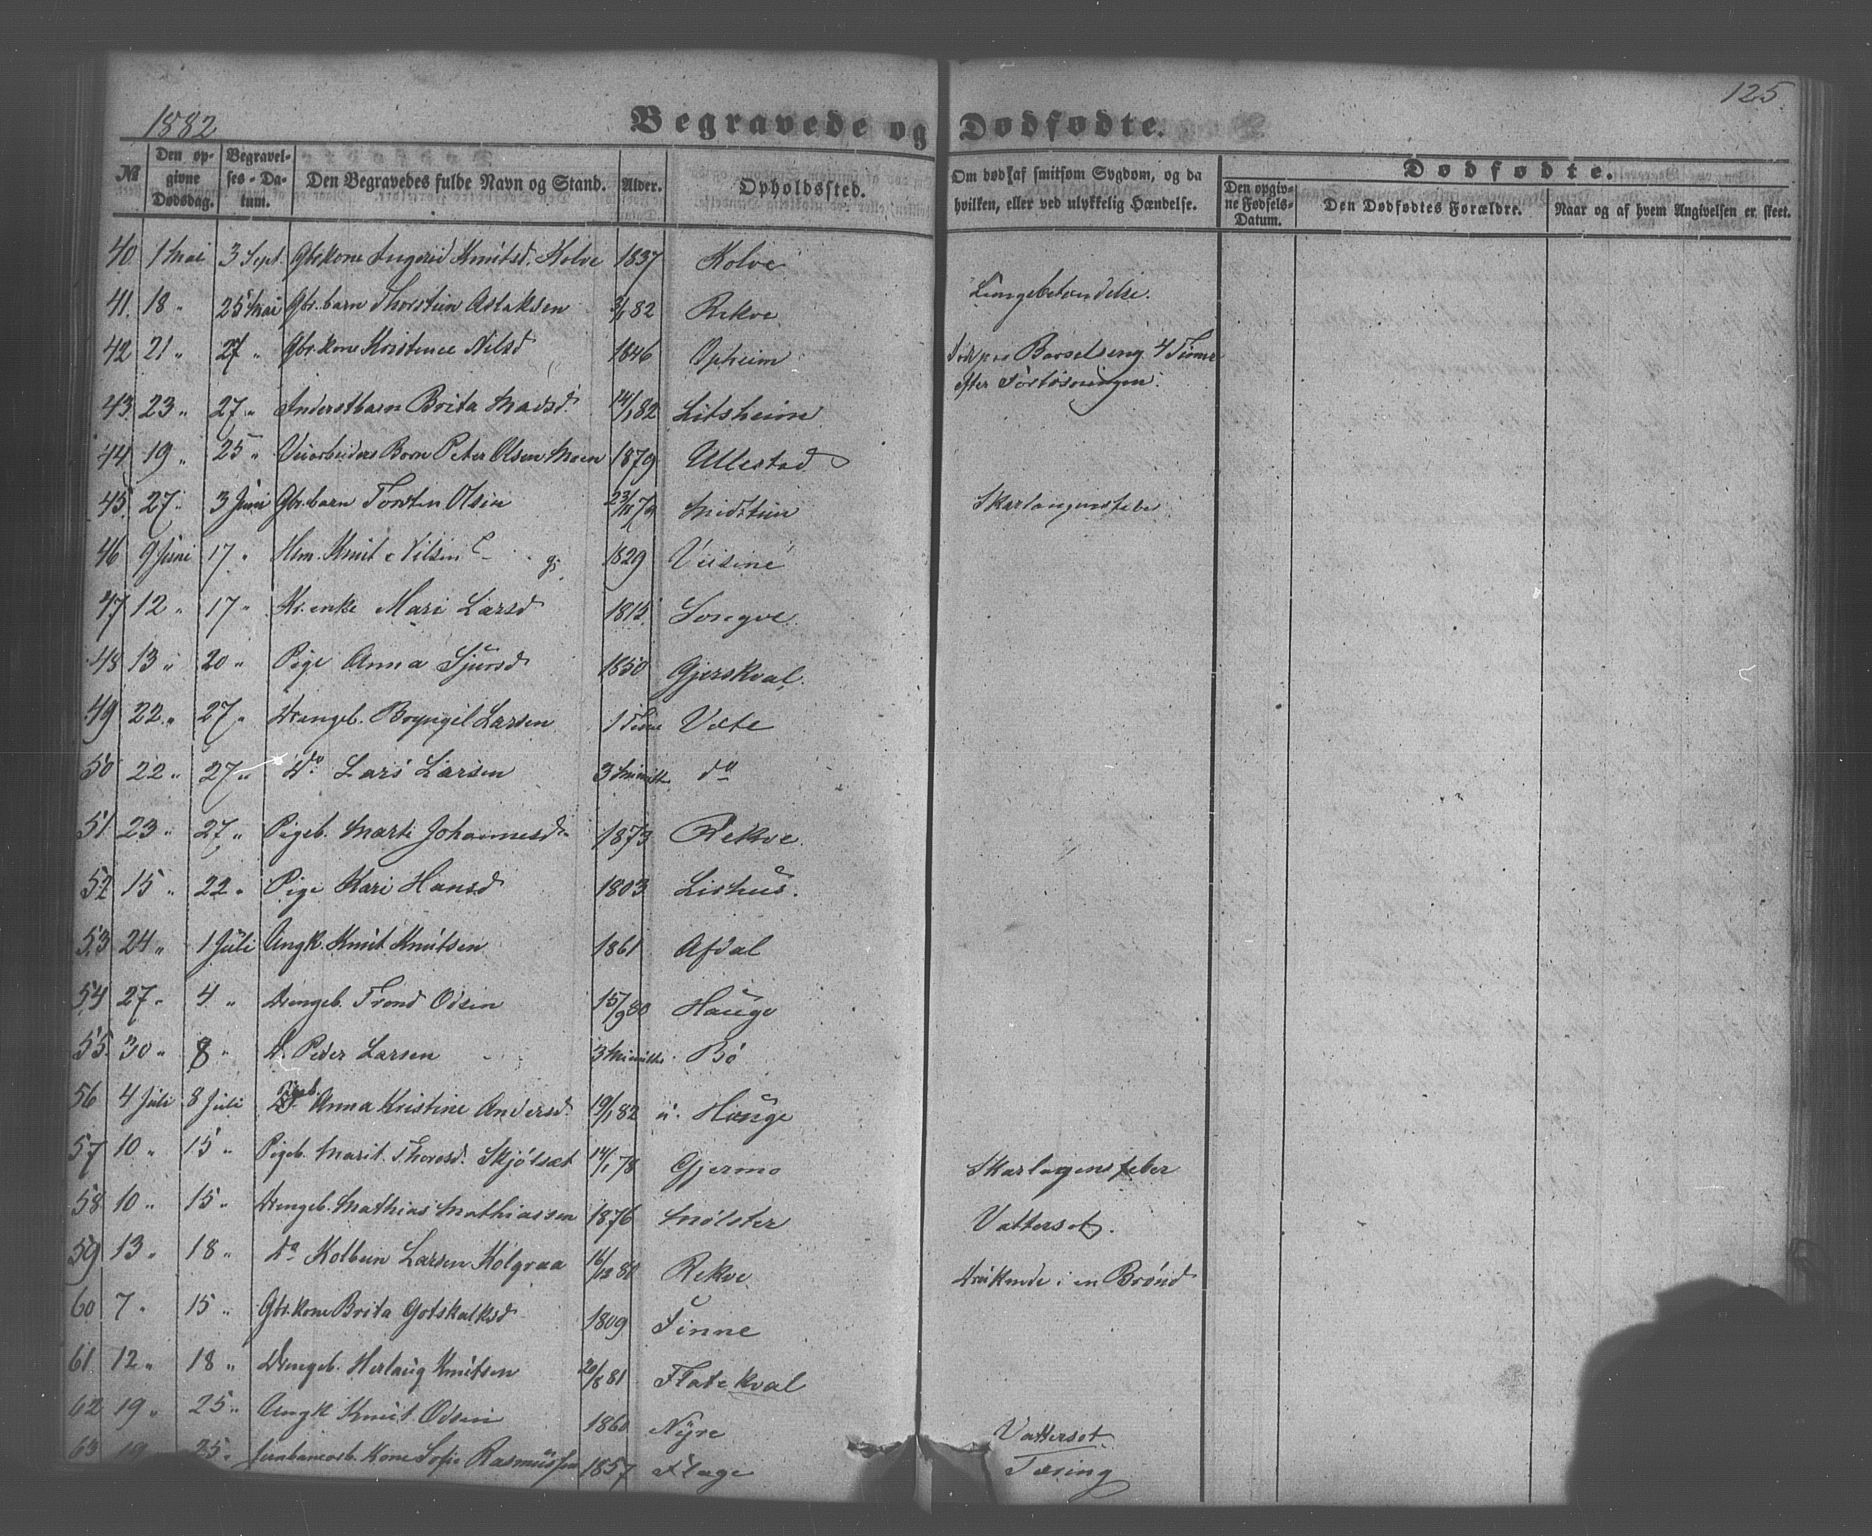 125.
1882
Begravede og Dødfødte.
№ Den opgivne Dødsdag. Begravelses-Datum. Den Begravedes fulde Navn og Stand. Alder. Opholdssted. Om død af smitsom Sygdom, og da hvilken, eller ved ulykkelig Hændelse. Dødfødte. Den opgivne Fødsels-Datum. Den Dødfødtes Forældre. Naar og af hvem Angivelsen er skeet.
40 1 Mai 3 Sept. Gbrkone Ingerid Knutsd. Kolve 1837 Kolve
41. 18 " 25 Mai Gbr.barn Thorstein Aslaksen 3/1 82 Rekve Lungebetændelse.
42 21 " 27 " Gbr.kone Kristence Nilsd 1846 Opheim Død paa Barselseng 4 Timer
efter Forløsningen.
43. 23 " 27 " Inderstbarn Brita Madsd. 14/1 82 Litsheim
44 19 " 25 " Veiarbeiders Barn Peter Olsen Moen 1879 Ullestad
45. 27 " 3 Juni Gbr.barn Torstin Olsen 23/11 Midttun Skarlagensfeber
46 9 Juni 17 " Knut Nilsen 1829
47 12 " 17 " enke Mari Larsd 1815 Songve
48 13 " 20 " Pige Anna Sjursd 1850 Gjerskval.
49 22 " 27 " Drengeb. Larsen 1 Time Væte
50 22 " 27 " Do Lars Larsen 3 Minutter do
51 23 " 27 " Pigeb. Marte Johannesd. 1873 Rekve
52 15 " 22 " Pige Kari Hansd 1803 Lishus.
53 24 " 1 Juli Ungk. Knut Knutsen 1861 Afdal
54 27 " 4 " Drengeb. Trond Odsen 15/9 80 Hauge
55. 30 " 8 " D. Peder Larsen 3 Minutter Bø
56 4 Juli 8 Juli Pigeb. Anna Kristine Andersd. 19/1 82 Hauge
57 10 " 15 " Pigeb. Marit Thoresd. Skjølsæt 14/1 78 Gjermo Skarlagensfeber
58 10 " 15 " Drengeb. Mathias Mathiassen 1876 Mølster Vattersot.
59 13 " 18 " Do Kolbein Larsen Kolgraa 16/12 80 Rekve Druknede i en Brønd
60 7 " 15 " Gbr.kone Brita Gotskalksd 1809 Finne
61. 12 " 18 " Drengeb. Herlaug Knutsen 20/8 81 Flatekval
62 19 " 25 " Ungk Knut Odsen 1860 Nyre Vattersot.
63 19 25 " Jernbanearb. Kone Sofie Rasmussen 1857 Flage Tæring